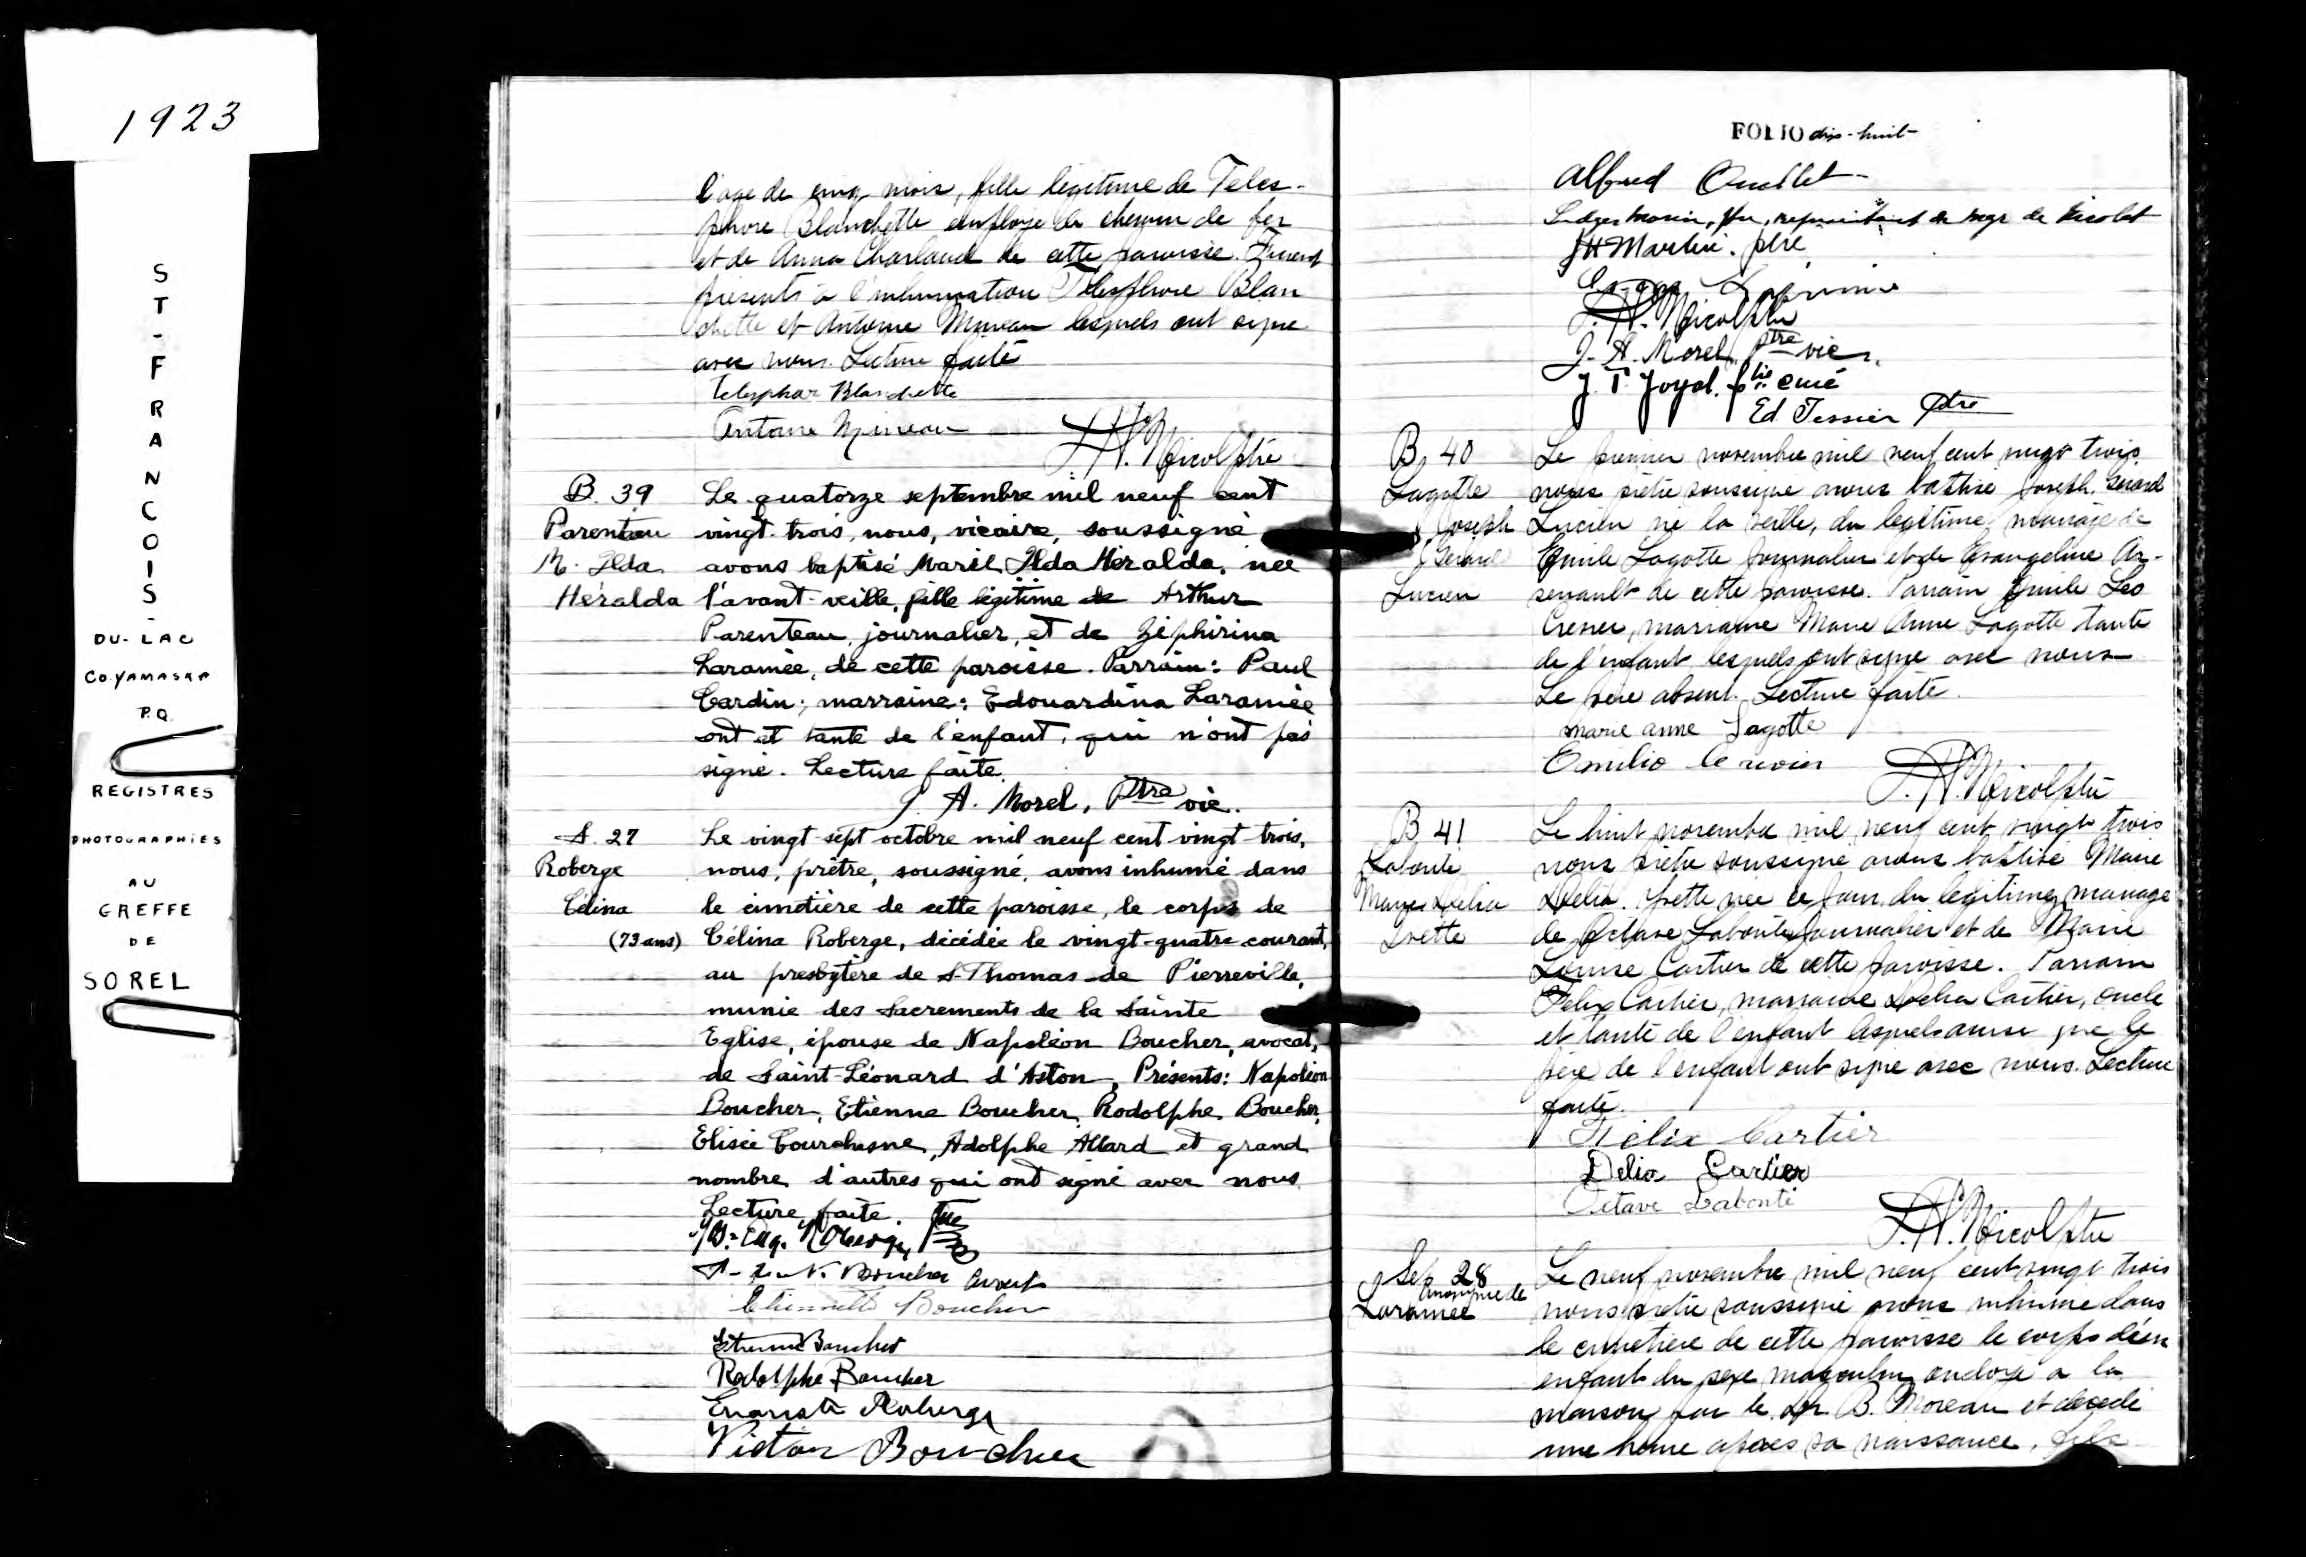 1923
ST-FRANCOIS-
DU-LAC
CO. YAMASKA
P.Q.
REGISTRES
PHOTOGRAPHIES
AU
GREFFE
DE
SOREL
l'age de cinq mois, fille legitime de Teles-
phore Blanchette employe de chemin de fer
et de Anna Charland de cette paroisse. Furent
presents a l'inhumation Telesphore Blan
chette et Antoine Mineau lesquels ont signe
avec nous. Lecture faite
Telesphor Blanchette
Antoine Mineau
B. 39
Parenteau
M. Ilda
Héralda
Le quatorze septembre mil neuf cent
vingt-trois, nous, vicaire, soussigné
avons baptisé Marie Ilda Héralda, née
l'avant-veille, fille légitime de Arthur
Parenteau, journalier, et de Zéphirina
Laramée, de cette paroisse. Parrain: Paul
Cardin; marraine: Edouardina Laramée
ont et tante de l'enfant, qui n'ont pas
signé. Lecture faite.
J. A. Morel, Ptre vic.
S. 27
Roberge
Célina
(73 ans)
Le vingt-sept octobre mil neuf cent vingt-trois,
nous, prêtre, soussigné, avons inhumé dans
le cimetière de cette paroisse, le corps de
Célina Roberge, décédée le vingt-quatre courant,
au presbytère de S-Thomas-de Pierreville,
munie des Sacrements de la Sainte
Eglise, épouse de Napoléon Boucher, avocat,
de Saint-Léonard d'Aston, Présents: Napoléon
Boucher, Etienne Boucher, Rodolphe Boucher,
Elisée Courchesne, Adolphe Allard et grand
nombre d'autres qui ont signé avec nous
Lecture faite.
Boucher avocat
Boucher
Etienne Boucher
Rodolphe Boucher
Evariste Roberge
Victor Boucher
FOLIO dix-huit
Alfred Ouellet
de Nicolet
J H Martin. ptre
J. A. Morel, ptre vic.
J. T. Joyal. ptre curé
Ed Tessier Ptre
B. 40
Lagotte
Joseph
Gerard
Lucien
Le premier novembre mil neuf cent vingt trois
nous prêtre soussigne avons baptise Joseph. Gerard
Lucien né la veille, du legitime mariage de
Emile Lagotte journalier et de Evangeline Ar-
senault de cette paroisse. Parrain Emile Leo
marraine Marie Anne Lagotte tante
de l'enfant lesquels ont signe avec nous
Le père absent. Lecture faite.
marie anne Lagotte
Emilio
B 41
Labonte
Marie Delia
Yvette
Le huit novembre mil neuf cent vingt trois
nous prêtre soussigne avons baptisé Marie
Delia. Yvette nee ce jour du legitime mariage
de Octave Labonte journalier et de Marie
Louise Cartier de cette paroisse. Parrain
Felix Cartier, marraine Delia Cartier, oncle
et tante de l'enfant lesquels ainsi que le
père de l'enfant ont signe avec nous. Lecture
faite.
Félix Cartier
Delia Cartier
Octave Labonté
Sep 28
Anonyme de
Laramee
Le neuf novembre mil neuf cent vingt trois
nous prêtre soussigné avons inhume dans
le cimetiere de cette paroisse le corps d'un
enfant du sexe masculin ondoyé a la
maison par le Dr. B. Moreau et decede
une heure apres sa naissance, fils